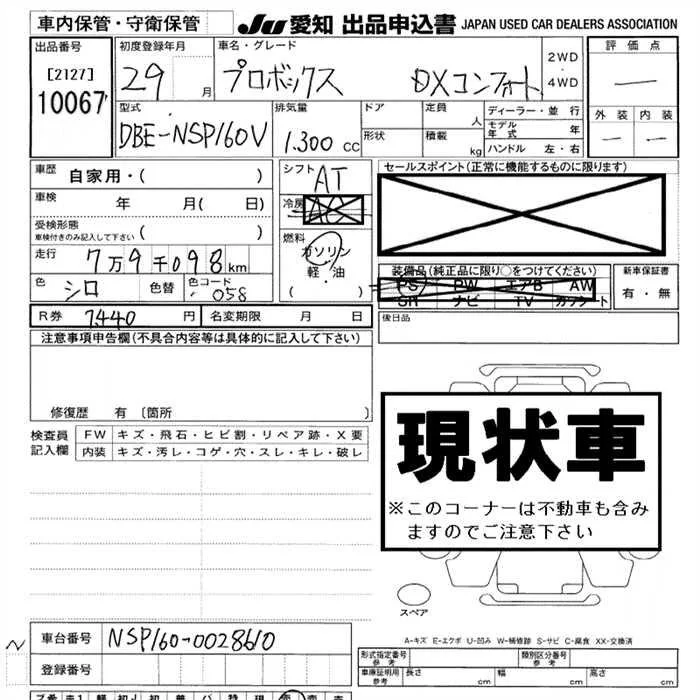 車内保管・守衛保管
JU 愛知 出品申込書 JAPAN USED CAR DEALERS ASSOCIATION
出品番号
[2127]
10067
初度登録年月
29 月
車名・グレード
プロボックス DXコンフォート
2WD
・
4WD
評価点
—
外装 内装
— —
型式
DBE-NSP160V
排気量
1.300 cc
ドア
形状
定員
人
積載
kg
ディーラー・並行
モデル年式 年
ハンドル 左・右
車歴 自家用・( )
車検 年 月( 日)
受検形態
車検付きのみ記入して下さい ( )
走行 7万9千098km
色 シロ 色替 色コード 058
シフト AT
冷房 AC
燃料
ガソリン
軽・油
( )
セールスポイント(正常に機能するものに限ります)
装備品(純正品に限り○をつけてください)
PS PW エアB AW
SR ナビ TV カワシート
新車保証書
有・無
R券 7,440 円 名変期限 月 日
後日品
注意事項申告欄(不具合内容等は具体的に記入して下さい)
修復歴 有 [箇所 ]
検査員記入欄
FW キズ・飛石・ヒビ割・リペア跡・X要
内装 キズ・汚レ・コゲ・穴・スレ・キレ・破レ
現状車
※このコーナーは不動車も含み
ますのでご注意下さい
スペア
A-キズ E-エクボ U-凹み W-補修跡 S-サビ C-腐食 XX-交換済
車台番号 NSP160-0028610
登録番号
形式指定番号 参考
類別区分番号 参考
車庫証明用 参考 長さ cm 幅 cm 高さ cm